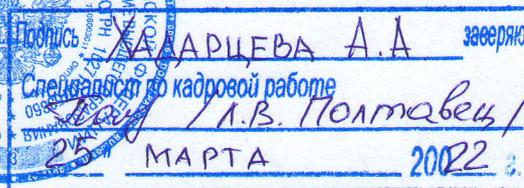 Подпись ХАДАРЦЕВА А.А заверяю
Специалист по кадровой работе
/Л.В. Полтавец/
25 МАРТА 20022 г.